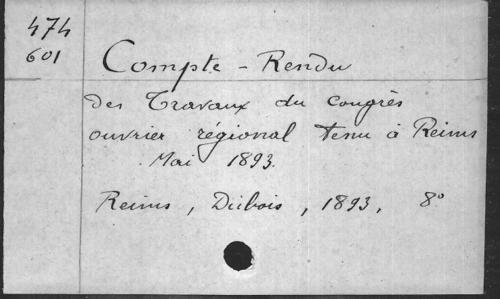 474
601
Compte-Rendu
des Travaux du congrès
ouvrier régional tenu à Reims
Mai 1893.
Reims, Dubois, 1893, 8°